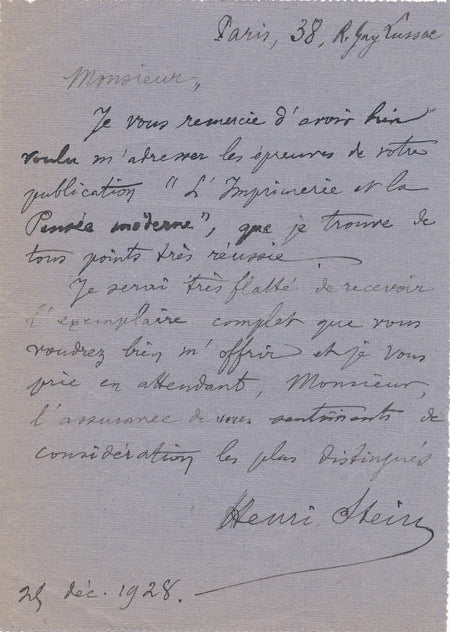 Paris, 38, R. Gay Lussac
Monsieur,
Je vous remercie d'avoir bien
voulu m'adresser les épreuves de votre
publication "L'Imprimerie et la
Pensée moderne", que je trouve de
tous points très réussie.
Je serai très flatté de recevoir
l'exemplaire complet que vous
voudrez bien m'offrir et je vous
prie en attendant, Monsieur,
l'assurance de sentiments de
considération les plus distingués
Henri Stein
déc. 1928.